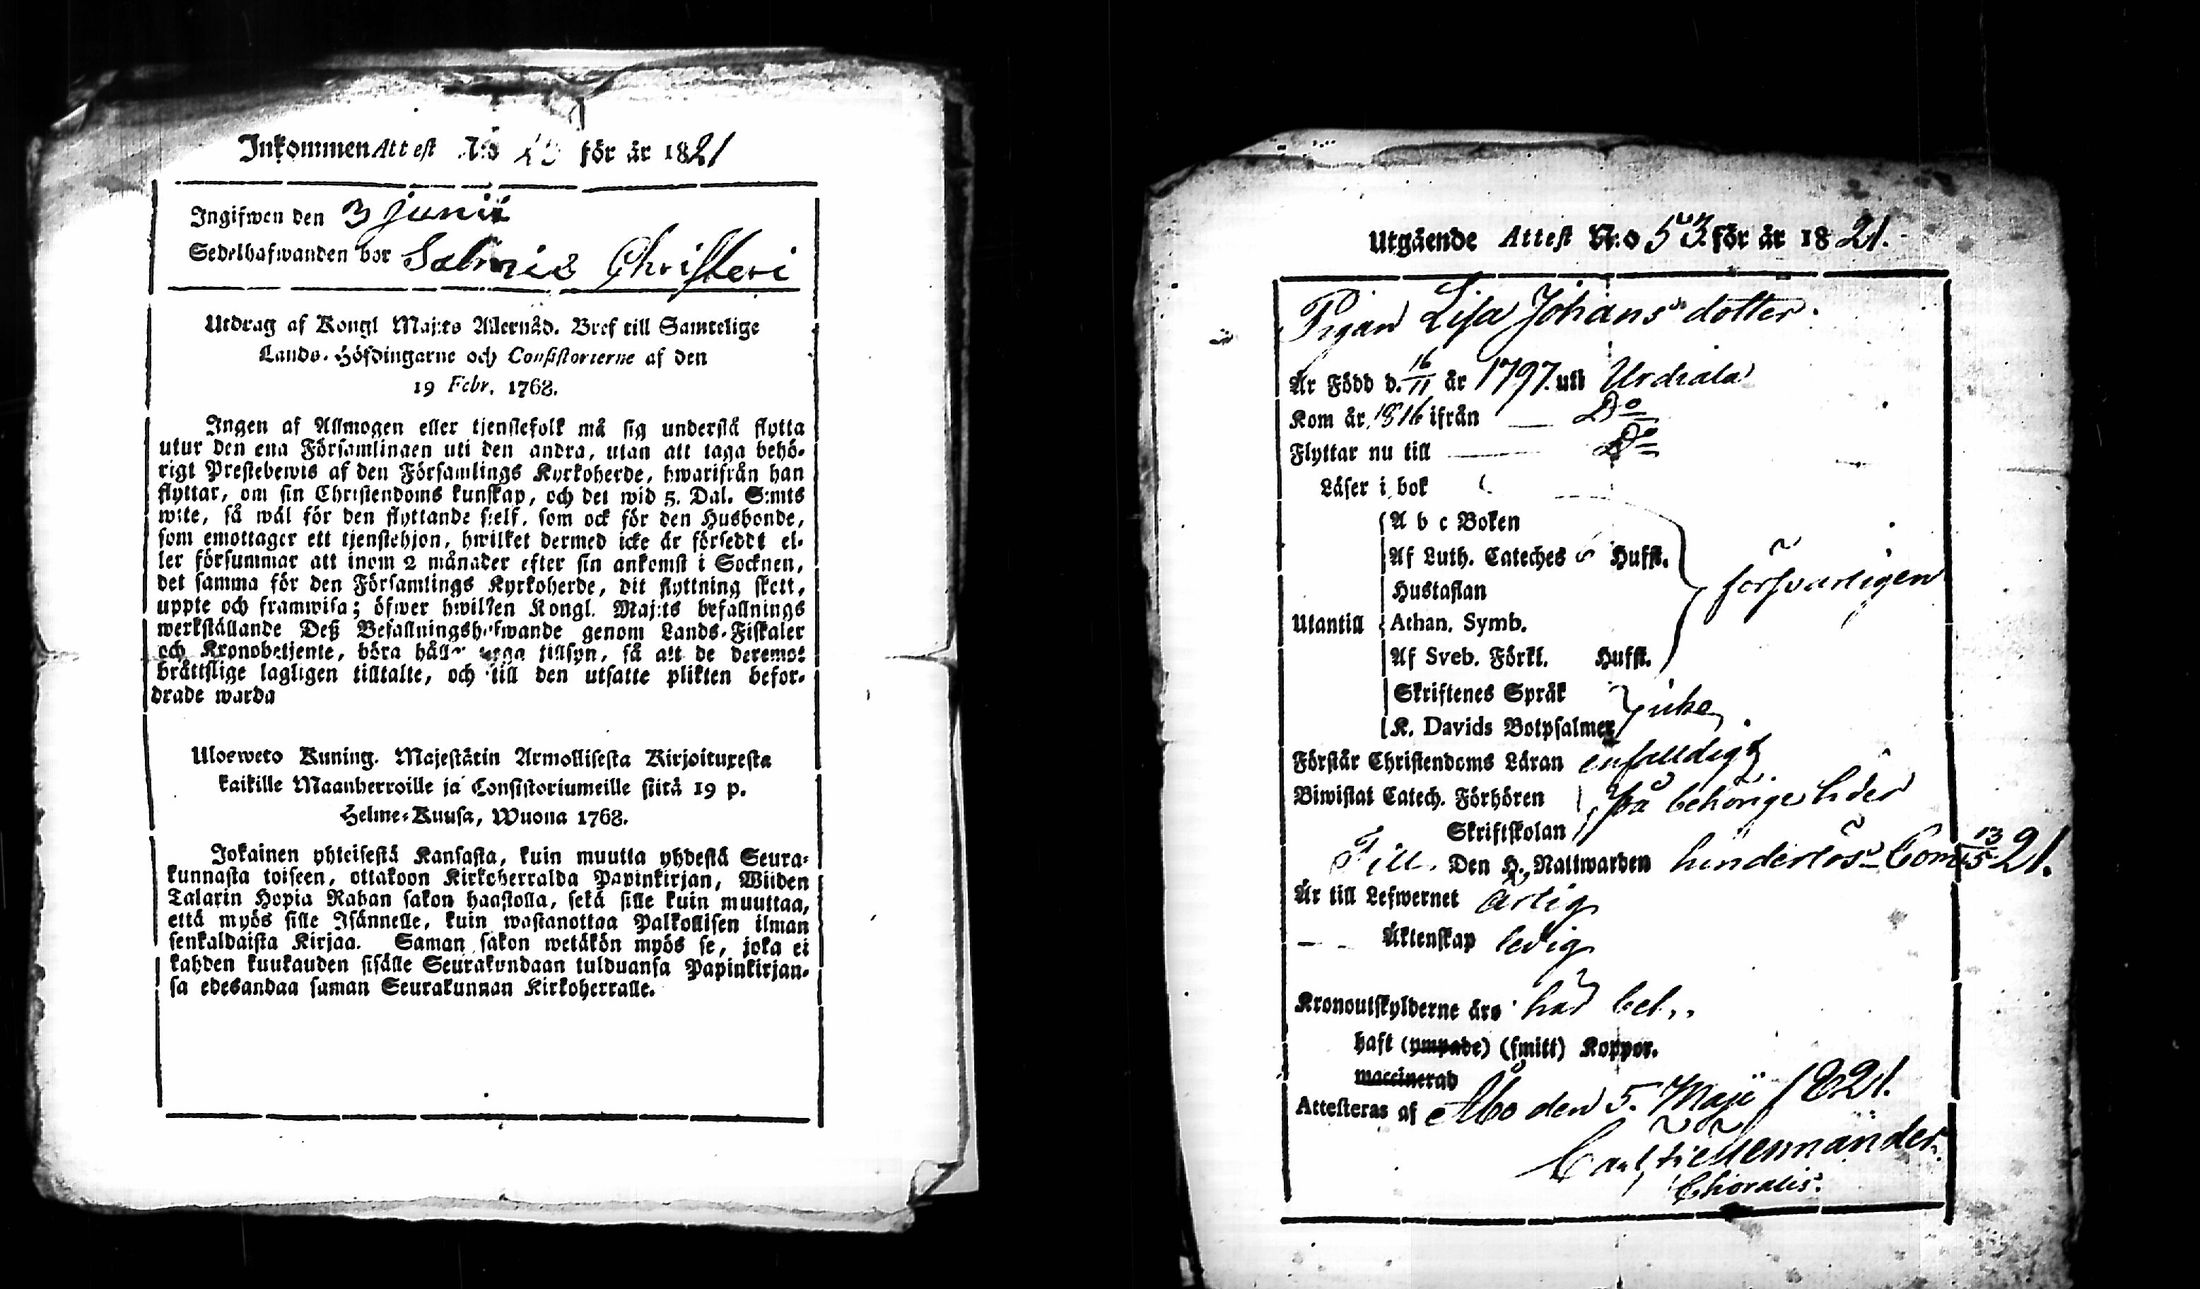 Inkommen Attest N:o för år 1821
Ingifwen den 3 Junii
Sedelhafwanden bor Salmis Christeri
Utdrag af Kongl Maj:ts Allernåd. Bref till Samtelige
Lands-Höfdingarne och Consistorierne af den
19 Febr. 1768.
Ingen af Allmogen eller tjenstefolk må sig understå flytta
utur den ena Församlingen uti den andra, utan att taga behö-
rigt Prestebewis af den Församlings Kyrkoherde, hwarifrån han
flyttar, om sin Christendoms kunskap, och det wid 5. Dal. S:mts
wite, så wäl för den flyttande sielf, som ock för den Husbonde,
som emottager ett tjenstehjon, hwilket dermed icke är förseddt el-
ler försummar att inom 2 månader efter sin ankomst i Socknen,
det samma för den Församlings Kyrkoherde, dit flyttning skett,
uppte och framwisa; öfwer hwilken Kongl. Maj:ts befallnings
werkställande Deß Befallningshafwande genom Lands-Fiskaler
och Kronobetjente, böra hålla noga tillsyn, så att de deremot
bråttslige lagligen tilltalte, och till den utsatte plikten befor-
drade warda
Ulosweto Kuning. Majestätin Armollisesta Kirjoituxesta
kaikille Maanherroille ja Consistoriumeille siitä 19 p.
Helme-Kuusa, Wuona 1768.
Jokainen yhteisestä Kansasta, kuin muutta yhdestä Seura-
kunnasta toiseen, ottakoon Kirkoherralda Papinkirjan, Wiiden
Talarin Hopia Rahan sakon haastolla, sekä sille kuin muuttaa,
että myös sille Isännelle, kuin wastanottaa Palkollisen ilman
senkaldaista Kirjaa. Saman sakon wetäkön myös se, joka ei
kahden kuukauden sisälle Seurakundaan tulduansa Papinkirjan-
sa edesandaa saman Seurakunnan Kirkoherralle.
Utgående Attest Nr:o 53 för år 1821.
Pigan Lisa Johansdotter.
Är Född d. 16/11 år 1797. uti Urdiala
Kom år 1816 ifrån — Do
Flyttar nu till — Do
Läser i bok
A b c Boken
Af Luth. Cateches 6 Hufst.
Hustaflan
försvarligen
Utantill Athan. Symb.
Af Sveb. Förkl. Hufst.
Skriftenes Språk
icke
K. Davids Botpsalmer
Förstår Christendoms Läran enfalldigt
Biwistat Catech. Förhören på behörige tider
Skriftskolan
Till Den H. Nattwarden hinderlös Com 13/5 21.
Är till Lefwernet ärlig
— Äktenskap ledig
Kronoutskylderne äro här bet.
haft (ympade) (smitt) Koppor.
waccinerad
Attesteras af Åbo den 5. Maji 1821.